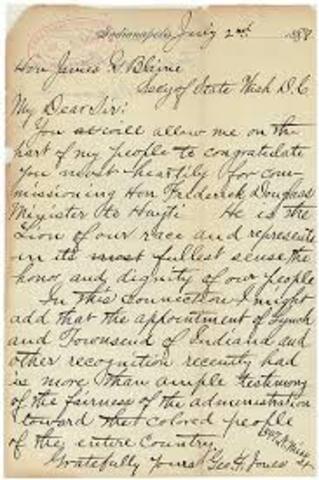 Indianapolis, July 2nd 1889
Hon James G Blaine
Secy of State Wash D.C
My Dear Sir:
You will allow me on the
part of my people to congratulate
you most heartily for com-
missioning Hon Frederick Douglass
Minister to Hayti. He is the
Lion of our race and represents
in its most fullest sense the
honor and dignity of our people
In this connection I might
add that the appointment of Lynch
and Townsend of Indiana and
other recognition recently had
is more than ample testimony
of the fairness of the administration
toward that colored people
of the entire Country.
Gratefully yours Geo. H. Jones